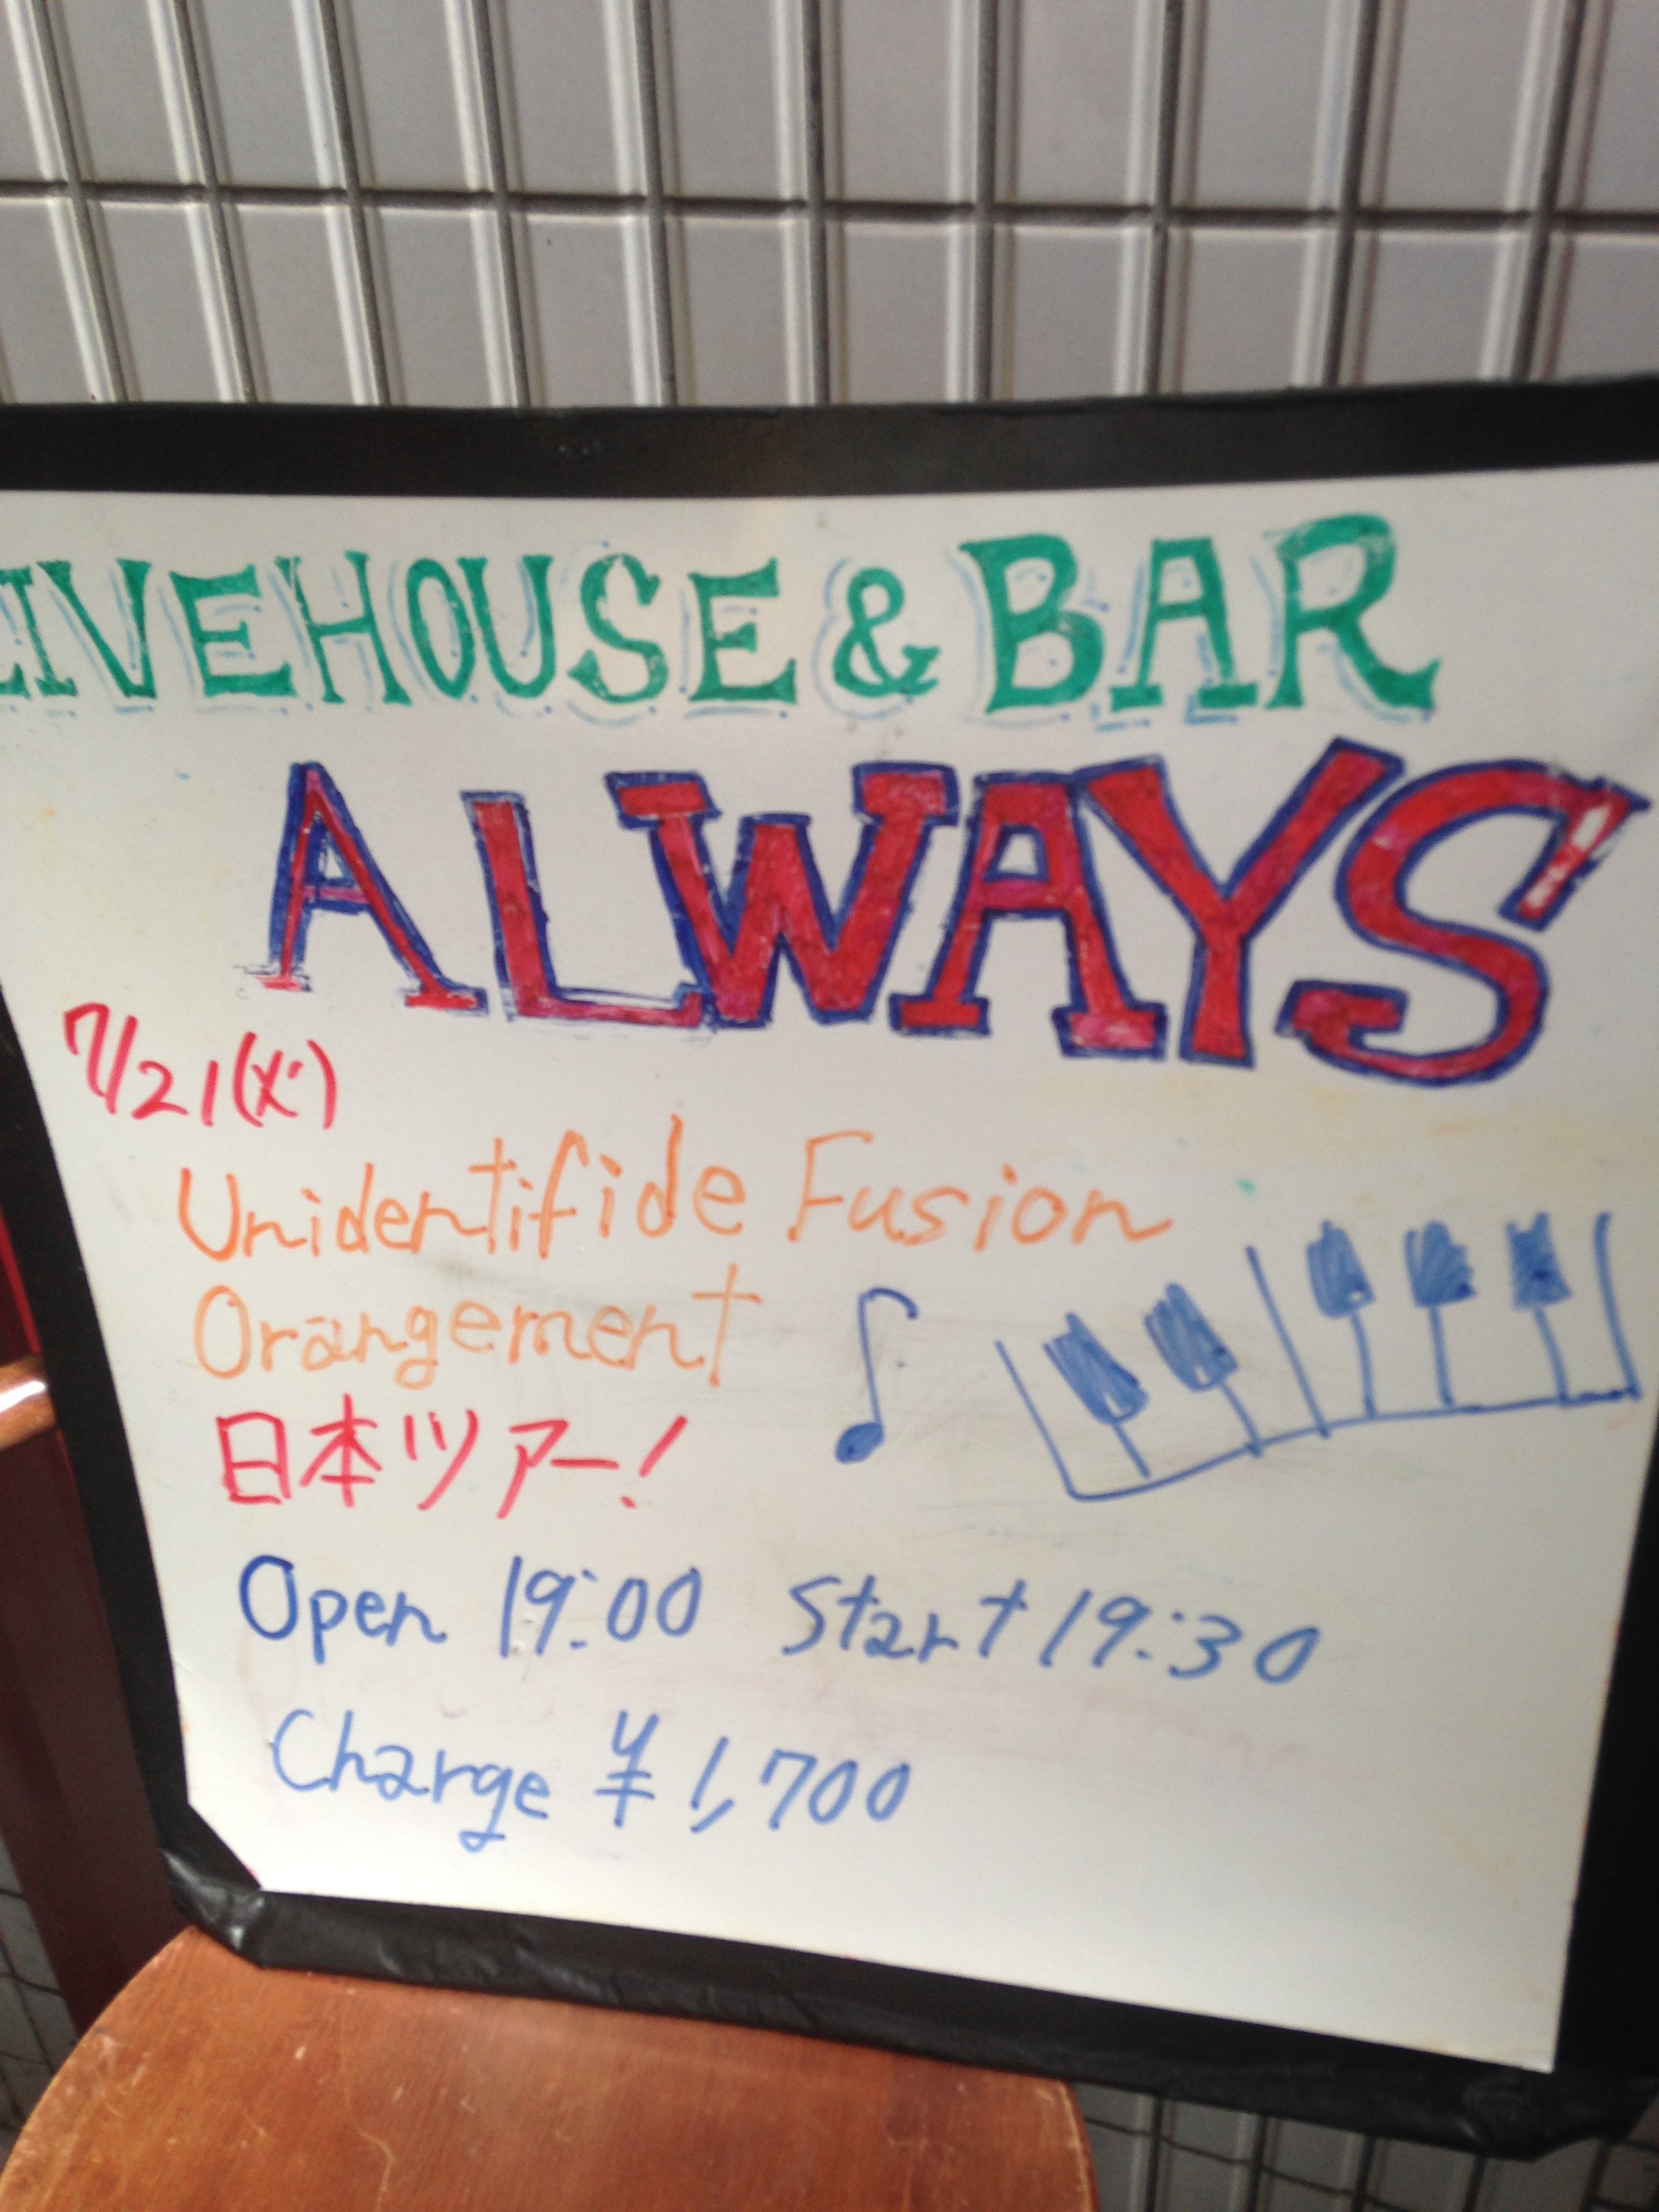 LIVEHOUSE & BAR
ALWAYS
7/21(火)
Unidentifide Fusion
Orangement
日本ツアー!
Open 19:00 Start 19:30
Charge ¥1,700